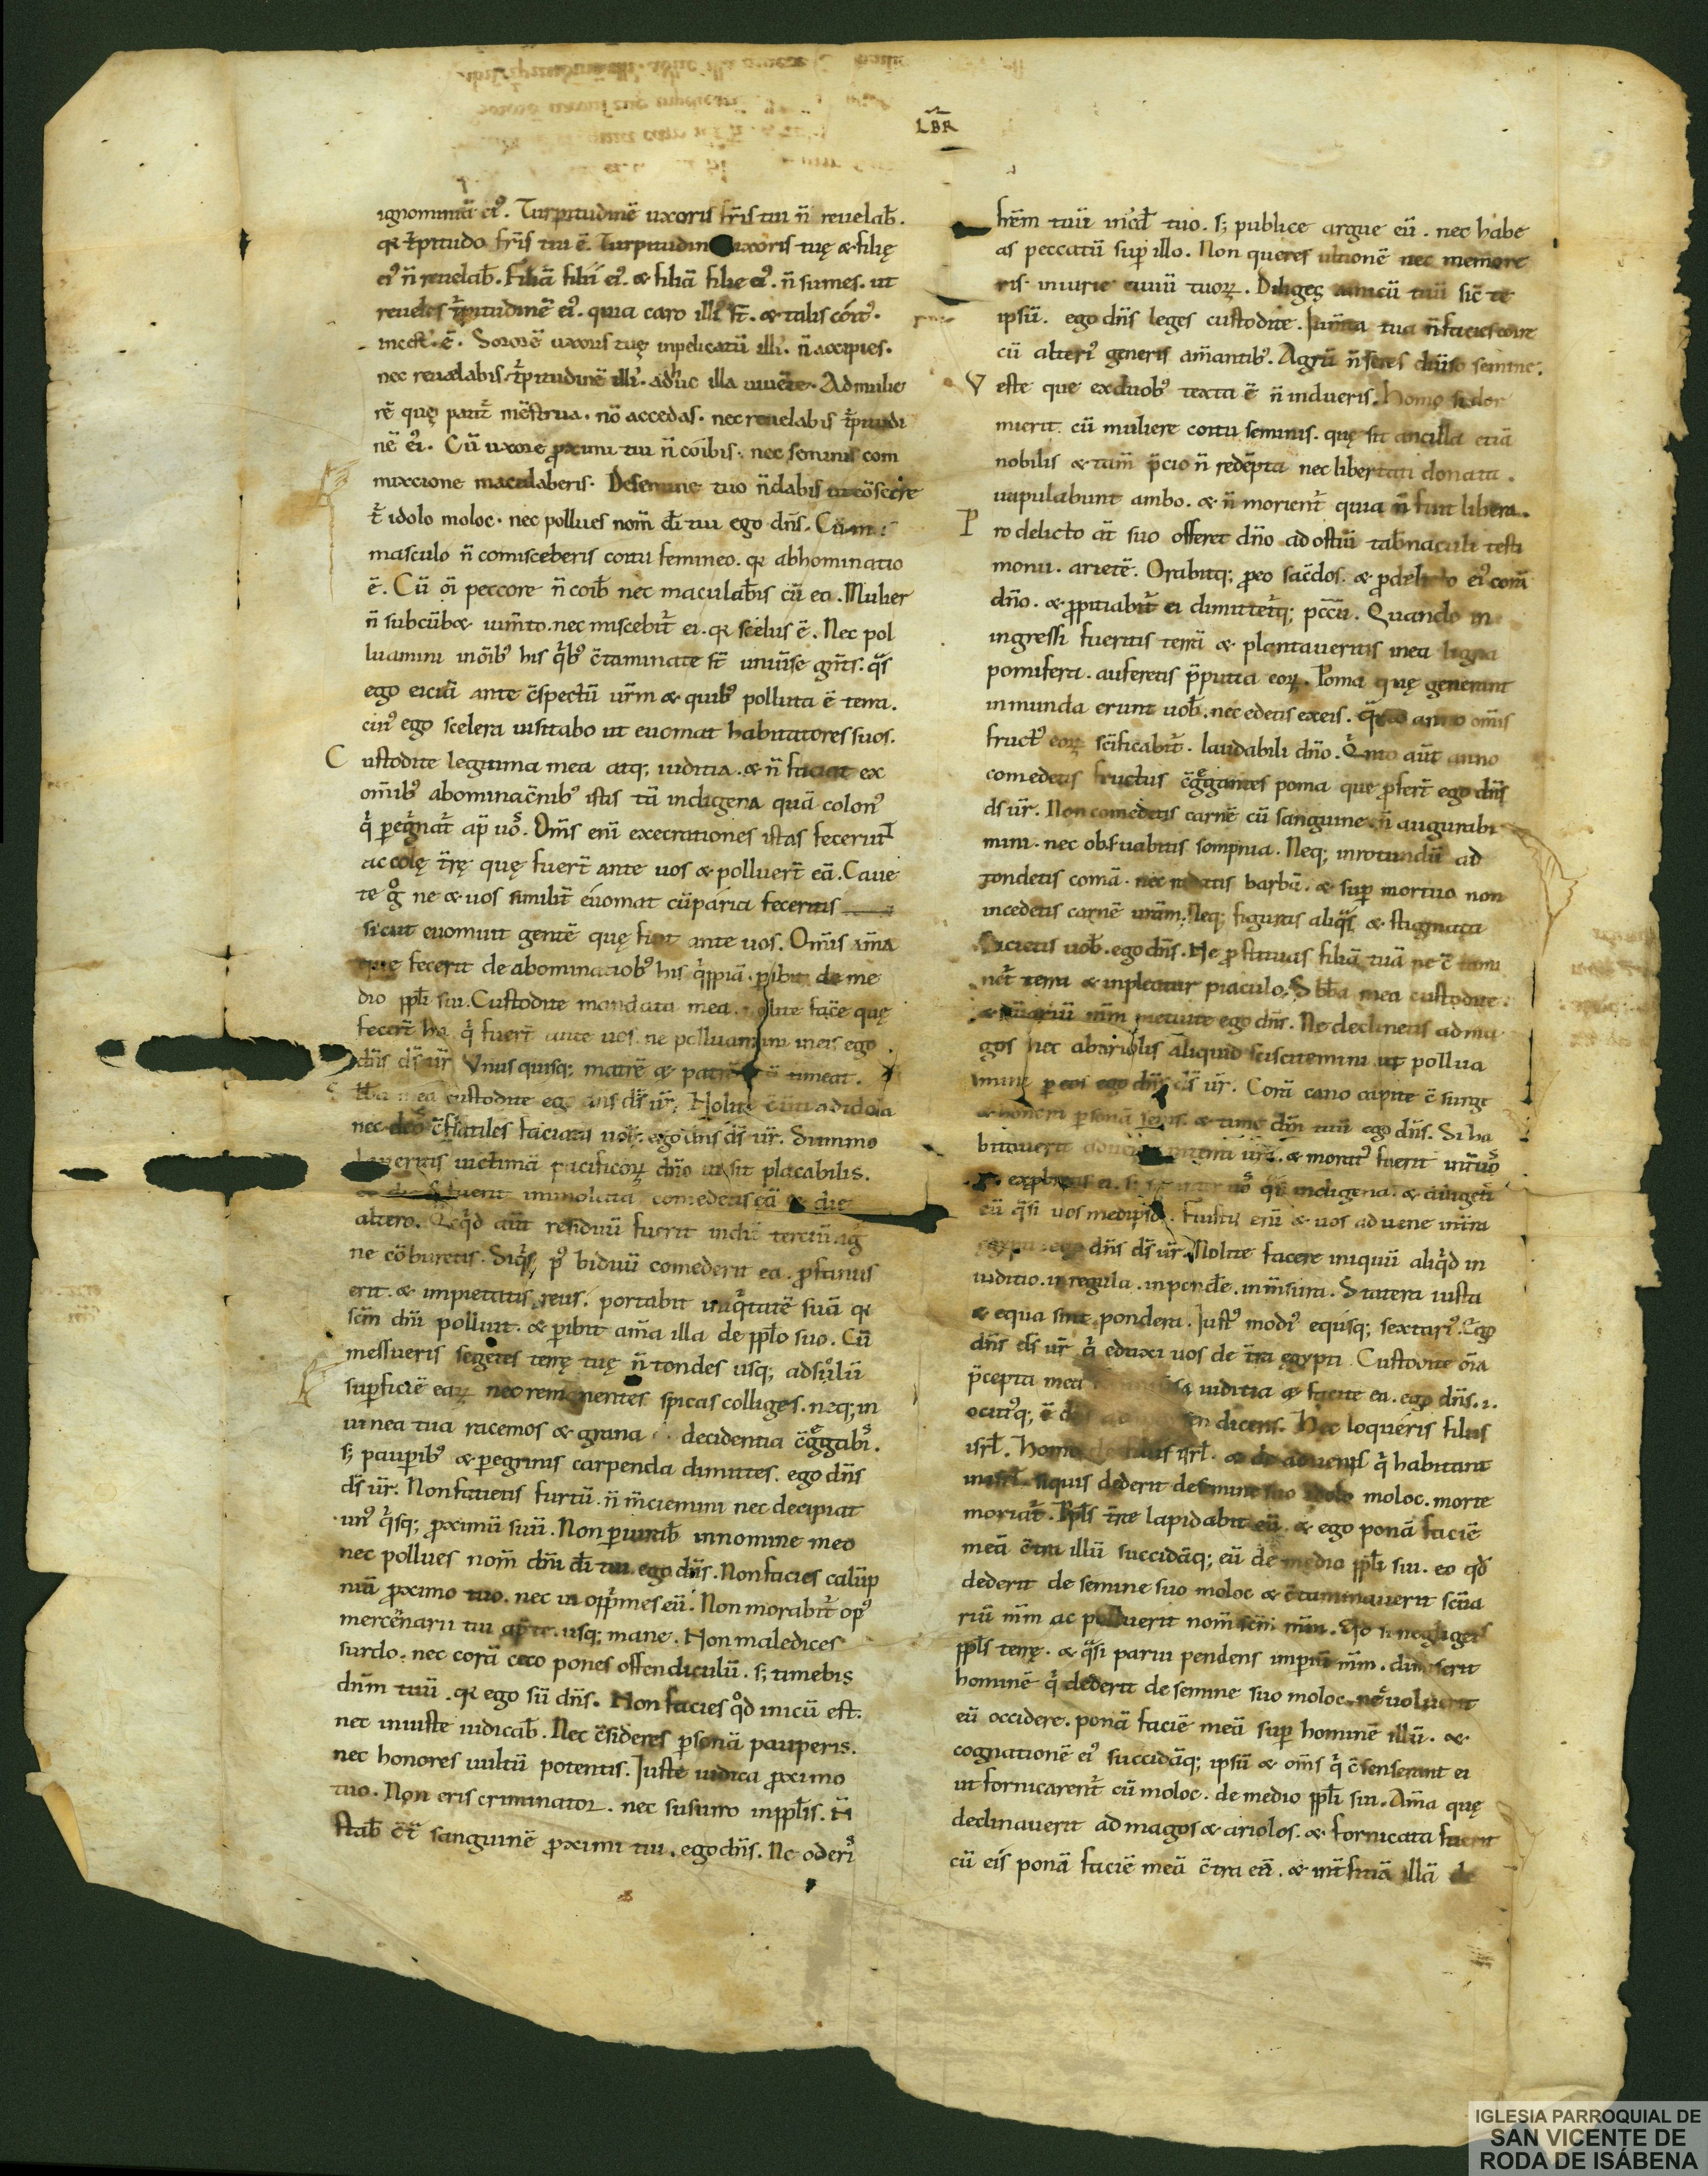 LB̄R
ignominiā ei᷒. Turpitudinē uxoris fr̄is tui n̄ reuelab̄.
q̄ t̄pitudo fr̄is tui ē. Turpitudin uxoris tuę & filię
ei᷒ n̄ reuelab̄. filiā filii ei᷒. & filiā filie ei᷒. n̄ sumes. ut
reueles t̄pitudinē ei᷒. quia caro illi᷒ s̄t. & talis
incest᷒. ē. Sororē uxoris tuę inpelicatū illi᷒. n̄ accipies.
nec reuelabis t̄pitudinē illi᷒. adhuc illa uiuēte. Ad mulie
rē quę patit̄ mēstrua. nō accedas. nec reuelabis t̄pitudi
nē ei᷒. Cū uxore ꝓximi tui n̄ cóibis. nec seminis com
mixcione maculaberis. De semine tuo n̄ dabis ut cōsecre
t̄ idolo moloc. nec pollues nom̄ dī tui ego dn̄s. Cum
masculo n̄ comisceberis coitu femineo. q̄ abhominatio
ē. Cū oī peccore n̄ coib̄ nec maculab̄is cū eo. Mulier
n̄ subcūb& ium̄to. nec miscebit̄ ei. q̄ scelus ē. Nec pol
luamini inōib᷒ his q̄b᷒ c̄taminate s̄t uniūse gn̄ts. q̄s
ego eiciā ante c̄spectū ur̄m & quib᷒ polluta ē terra.
cui᷒ ego scelera uisitabo ut euomat habitatores suos.
Custodite legitima mea atq; iuditia. & n̄ faciat ex
om̄ib᷒ abominac̄nib᷒ istis tā indigena quā colon᷒
q̄ peg̃nat̄ ap̄ uōs. Om̄s enī execrationes istas fecerunt
accolę t̄rę quę fuert̄ ante uos & polluert̄ eā. Caue
te g̊ ne & uos similit̄ éuomat cū párici feceritis
sicut euomuit gentē quę fuit ante uos. Om̄is am̄a
que fecerit de abominatiob᷒ his q̄ppiā. ꝑibit de me
dio ppl̄i sui. Custodite mandata mea. nolite fac̄e quę
fecert̄ hi q̄ fuert̄ ante uos. ne polluamini in eis ego
dn̄s ds̄ ur̄. Unusquisq; matrē & patrē suū timeat.
sb̄ba mea custodite ego dn̄s ds̄ ur̄. Nolite c̄uerti ad idola
nec deos c̄flatiles faciatis uob̄. ego dn̄s ds̄ ur̄. Si immo
laueritis uictimā pacificoꝝ dn̄o ut sit placabilis.
fuerit immolata comedetis eā & die
altero. q̄d aūt residuū fuerit in diē terciū ig̃
ne cōburetis. Siq̄s p᷒ biduū comederit ea. ꝓfanus
erit. & impietatis reus. portabit iniq̄tatē suā q̄
sc̄m dn̄i polluit. & ꝑibit am̄a illa de ppl̄o suo. Cū
messueris segetes terrę tuę n̄ tondes usq; ad solū
suꝑficiē eaꝝ nec remanentes spicas colliges. neq; in
uinea tua racemos & grana decidentia c̄g̃gabis.
s; pauꝑib᷒ & ꝑegrinis carpenda dimittes. ego dn̄s
ds̄ ur̄. Non facietis furtū. n̄ m̄ciemini nec decipiat
un᷒ q̄sq; ꝓximū suū. Non ꝑiurab̄ in nomine meo
nec pollues nom̄ dn̄i dī tui. ego dn̄s. Non facies calūp
niā ꝓximo tuo. nec ui opp̄mes eū. Non morabit̄ op᷒
mercēnarii tui ap̄ te. usq; mane. Non maledices
surdo. nec corā ceco pones offendiculū. s; timebis
dn̄m tuū. q̄ ego sū dn̄s. Non facies q̊d inicū est.
nec iniuste iudicab̄. Nec c̄sideres ꝑsonā pauperis.
nec honores uultū potentis. Juste iudica ꝓximo
tuo. Non eris criminator. nec susurro in ppl̄is. N̄
stab̄ c̄t̄ sanguinē ꝓximi tui. ego dn̄s. Ne oderis
fr̄em tuū in cord̄ tuo. s; publice argue eū. nec habe
as peccatū suꝑ illo. Non queres ultionē nec memore
ris iniurie ciuiū tuoꝝ. Diliges amicū tuū sic̄ te
ipsū. ego dn̄s leges custodite. Jum̄ta tua n̄ facies coire
cū alteri᷒ generis am̄antib᷒. Agrū n̄ seres diūso semine.
Ueste que ex duob᷒ texta ē n̄ indueris. Homo si dor
mierit cū muliere coitu seminis. quę sit ancilla etiā
nobilis & tam̄ p̄cio n̄ redēpta nec libertati donata.
uapulabunt ambo. & n̄ morient̄ quia n̄ fuit libera.
Pro delicto aūt suo offeret dn̄o ad ostiū tab̄naculi testi
monii. arietē. Orabitq; ꝓ eo sac̄dos. & ꝓ delicto ei᷒ corā
dn̄o. & ꝓpitiabit̄ ei dimittet̄q; pcc̄m. Quando in
ingressi fueritis terrā & plantaueritis in ea ligna
pomifera. auferetis p̄putia eoꝝ. Poma quę generant
inmunda erunt uob̄. nec edetis ex eis. q̄rto anno om̄is
fruct᷒ eoꝝ sc̄ificabit̄. laudabili dn̄o. Q̄nto aūt anno
comedetis fructus c̄g̃gantes poma que ꝓfert̄ ego dn̄s
ds̄ ur̄. Non comedetis carnē cū sanguine. n̄ augurabi
mini. nec obseruabitis sompnia. Neq; in rotundū ad
tondetis comā. nec radatis barbā. & suꝑ mortuo non
incedetis carnē urām. Neq; figuras aliq̄s & stigmata
facietis uob̄. ego dn̄s. Ne ꝓstituas filiā tuā ne c̄tami
net̄ terra & inpleatur piaculo. Sb̄ba mea custodite.
& sc̄uariū mm̄ metuite ego dn̄s. Ne declinetis ad ma
gos nec ab ariolis aliquid sciscitemini ut pollua
mini ꝑ eos ego dn̄s ds̄ ur̄. Corā cano capite c̄surge
& honora ꝑsonā senis. & time dn̄m tuū ego dn̄s. Si ha
bitauerit aduena in terra urā. & morat᷒ fuerit int̄ uos
n̄ exprobretis ei. s; sit int̄ uos q̄si indigena. & diligetis
eū q̄si uos med ipsos. Fuistis enī & uos aduene in t̄ra
egypti. ego dn̄s ds̄ ur̄. Nolite facere iniquū aliq̄d in
iuditio. in regula. in pond̄e. in m̄sura. Statera iusta
& equa sint pondera. Just᷒ modi᷒ equisq; sextari᷒. Ego
dn̄s ds̄ ur̄ q̄ eduxi uos de t̄ra egypti. Custodite om̄ia
p̄cepta mea iuditia & facite ea. ego dn̄s.
ocut᷒q; ē dn̄s dicens. Hec loqueris filiis
isrl̄. Homo de filiis isrl̄. & de aduenis q̄ habitant
in isrl̄. siquis dederit de semine suo idolo moloc. morte
moriat̄. Ppl̄s t̄re lapidabit eū. & ego ponā faciē
meā c̄tra illū succidāq; eū de medio ppl̄i sui. eo qd̄
dederit de semine suo moloc & c̄taminauerit sc̄ua
riū mm̄ ac polluerit nom̄ sc̄m mm̄. Qd̄ si negliges
ppl̄s terrę. & q̄si parui pendens imꝑiū mm̄. dimiserit
hominē q̄ dederit de semine suo moloc. nec uoluerit
eū occidere. ponā faciē meā suꝑ hominē illū. &
cognationē ei᷒ succidāq; ipsū & om̄s q̄ c̄senserunt ei
ut fornicarent̄ cū moloc. de medio ppl̄i sui. Am̄a quę
declinauerit ad magos & ariolos. & fornicata fuerit
cū eis ponā faciē meā c̄tra eā. & int̄ficiā illā de
IGLESIA PARROQUIAL DE
SAN VICENTE DE
RODA DE ISÁBENA